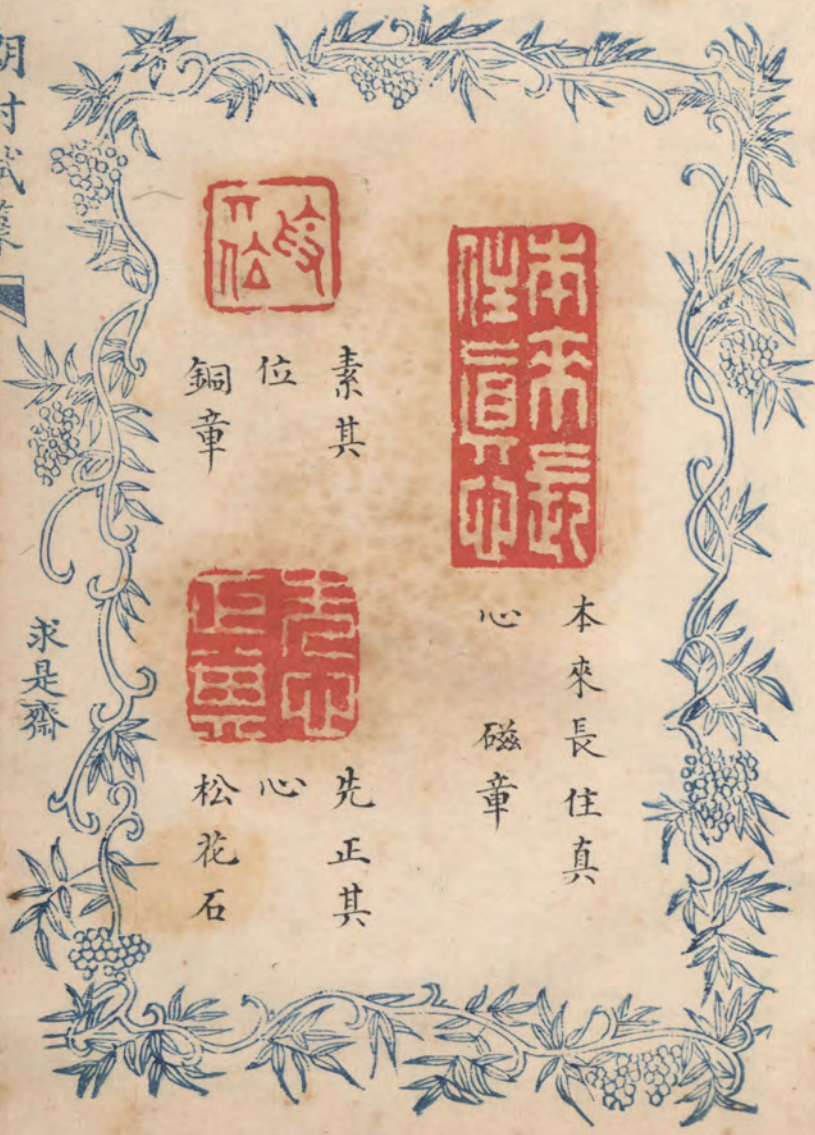 本來長
住真心
本來長住真
心 磁章
素其
位
銅章
先正其
心
松花石
求是齋